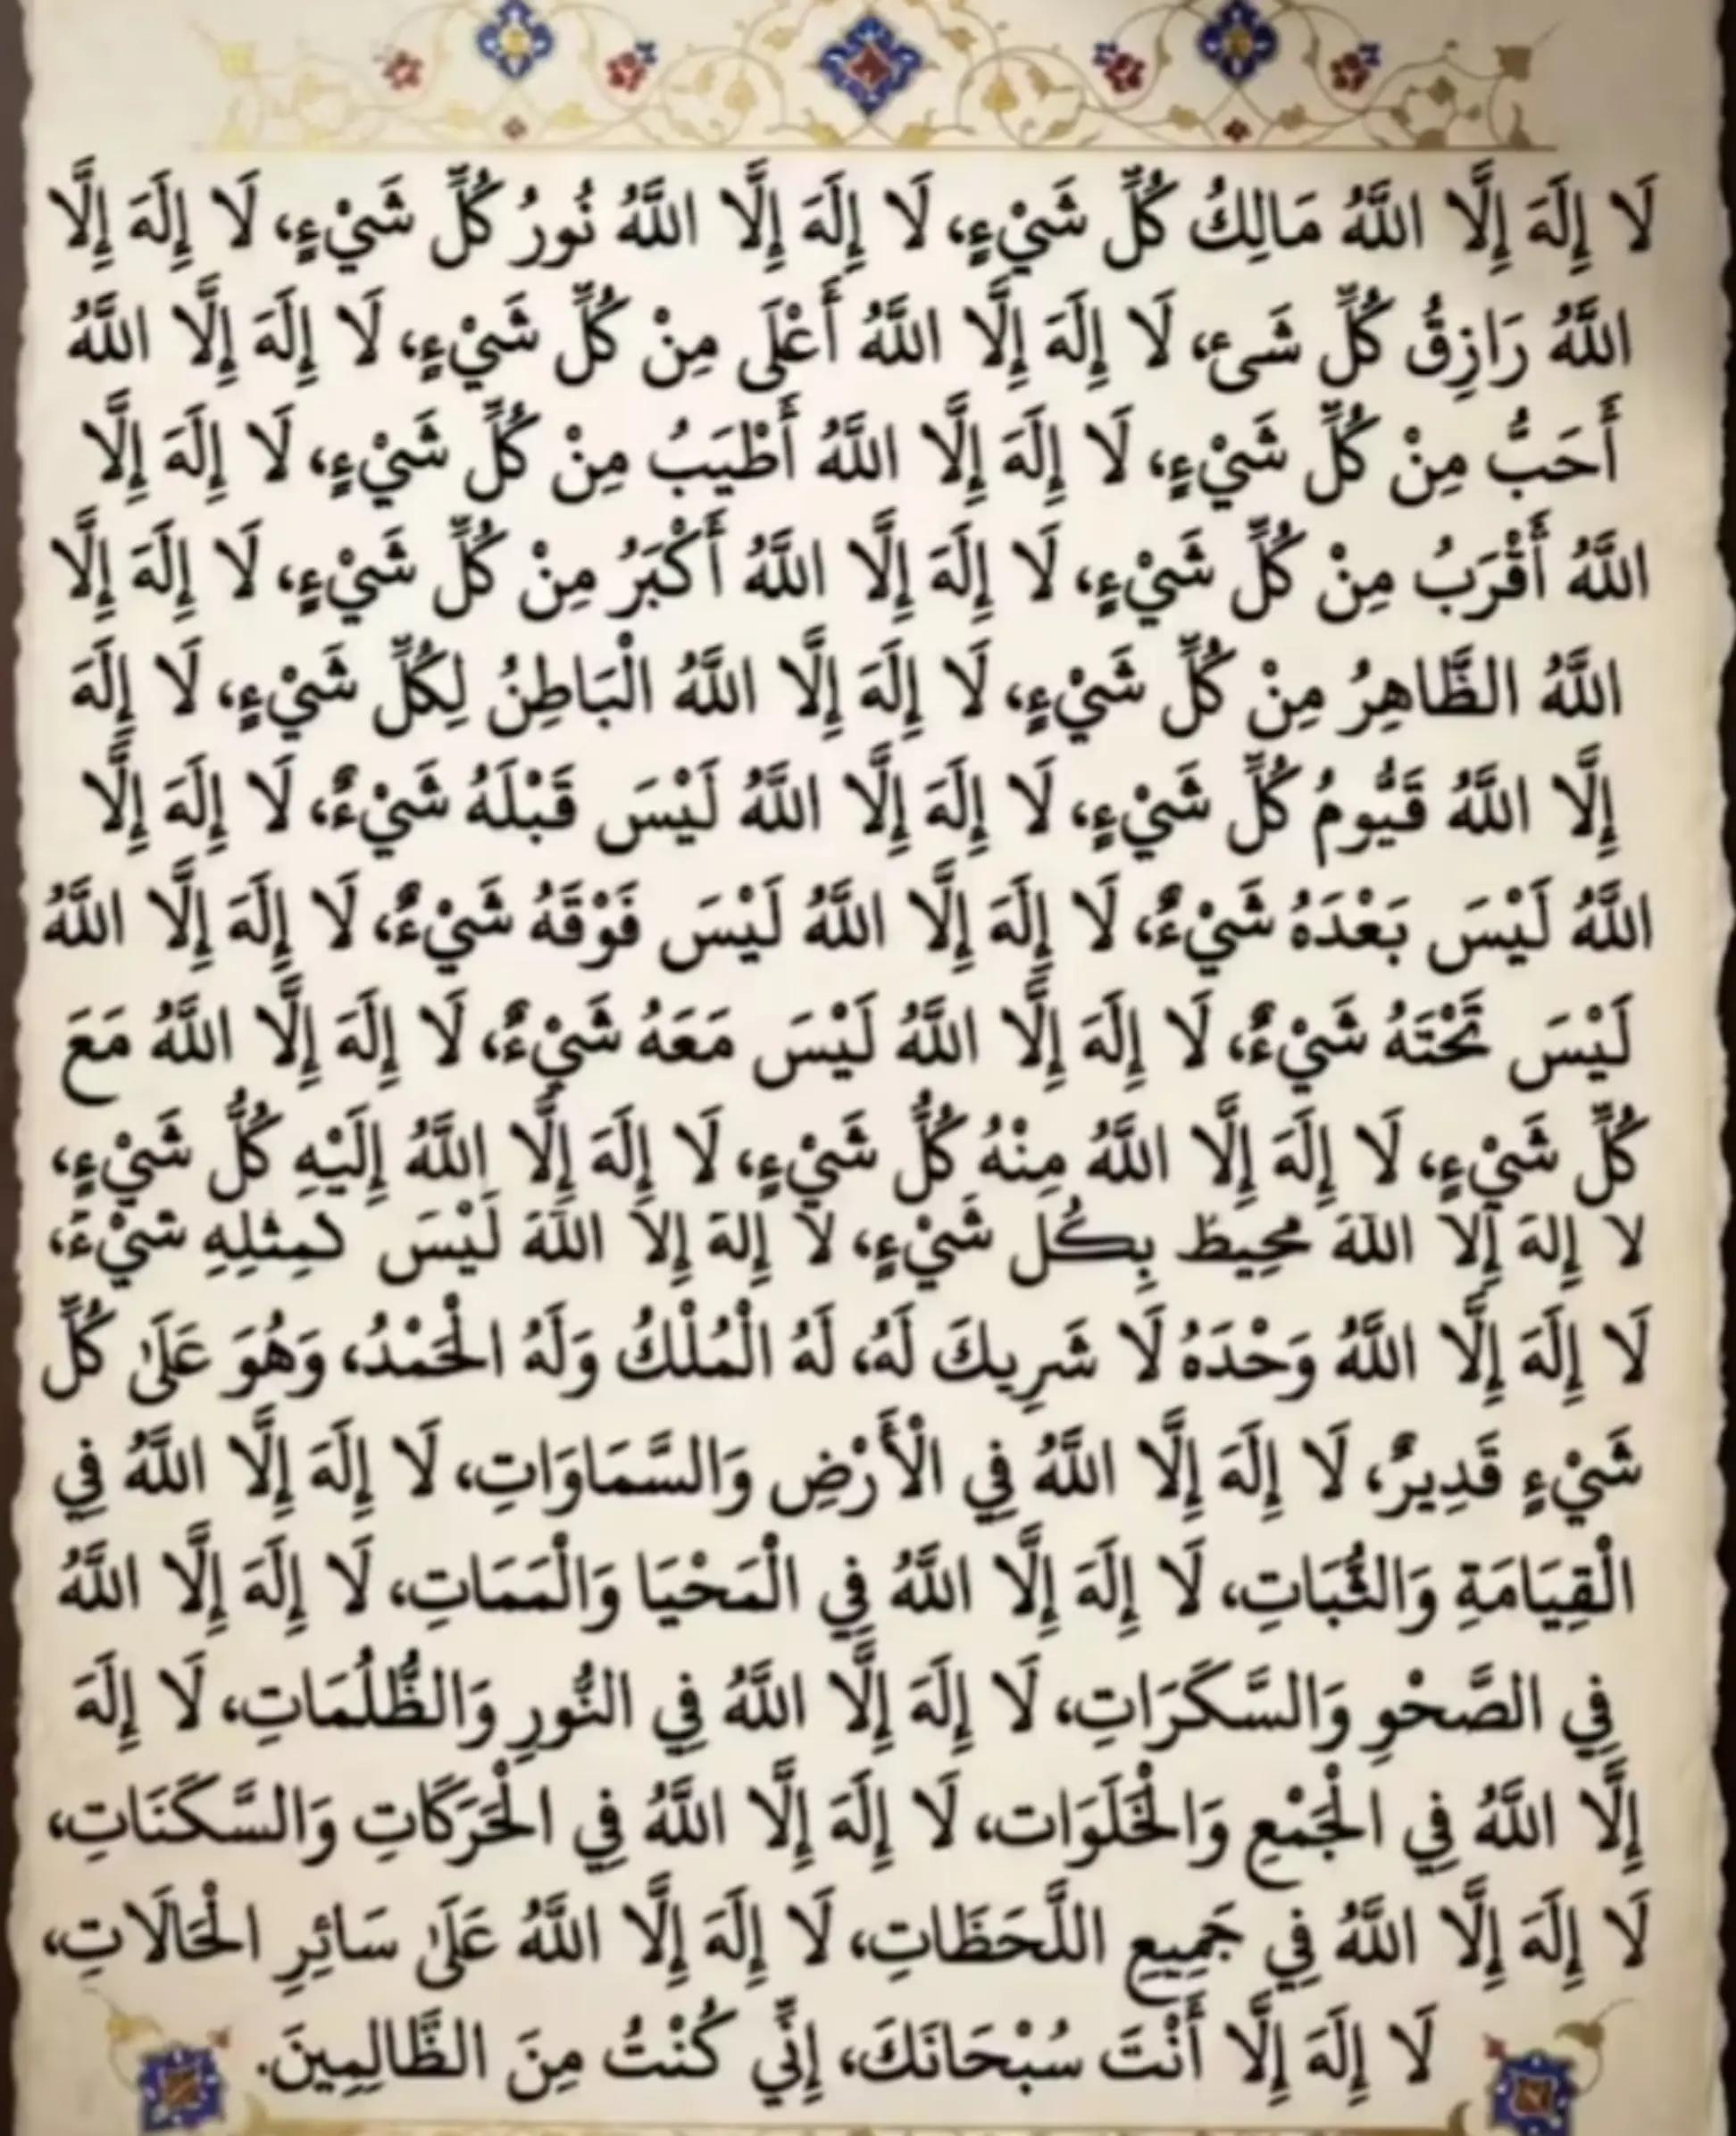 لَا إِلَهَ إِلَّا اللَّهُ مَالِكُ كُلِّ شَيْءٍ، لَا إِلَهَ إِلَّا اللَّهُ نُورُ كُلِّ شَيْءٍ، لَا إِلَهَ إِلَّا
اللَّهُ رَازِقُ كُلِّ شَىء، لَا إِلَهَ إِلَّا اللَّهُ أَعْلَى مِنْ كُلِّ شَيْءٍ، لَا إِلَهَ إِلَّا اللَّهُ
أَحَبُّ مِنْ كُلِّ شَيْءٍ، لَا إِلَهَ إِلَّا اللَّهُ أَطْيَبُ مِنْ كُلِّ شَيْءٍ، لَا إِلَهَ إِلَّا
اللَّهُ أَقْرَبُ مِنْ كُلِّ شَيْءٍ، لَا إِلَهَ إِلَّا اللَّهُ أَكْبَرُ مِنْ كُلِّ شَيْءٍ، لَا إِلَهَ إِلَّا
اللَّهُ الظَّاهِرُ مِنْ كُلِّ شَيْءٍ، لَا إِلَهَ إِلَّا اللَّهُ الْبَاطِنُ لِكُلِّ شَيْءٍ، لَا إِلَهَ
إِلَّا اللَّهُ قَيُّومُ كُلِّ شَيْءٍ، لَا إِلَهَ إِلَّا اللَّهُ لَيْسَ قَبْلَهُ شَيْءٌ، لَا إِلَهَ إِلَّا
اللَّهُ لَيْسَ بَعْدَهُ شَيْءٌ، لَا إِلَهَ إِلَّا اللَّهُ لَيْسَ فَوْقَهُ شَيْءٌ، لَا إِلَهَ إِلَّا اللَّهُ
لَيْسَ تَحْتَهُ شَيْءٌ، لَا إِلَهَ إِلَّا اللَّهُ لَيْسَ مَعَهُ شَيْءٌ، لَا إِلَهَ إِلَّا اللَّهُ مَعَ
كُلِّ شَيْءٍ، لَا إِلَهَ إِلَّا اللَّهُ مِنْهُ كُلُّ شَيْءٍ، لَا إِلَهَ إِلَّا اللَّهُ إِلَيْهِ كُلُّ شَيْءٍ،
لا إِلهَ إِلا اللهَ مُحِيطَ بِكُل شَيْءٍ، لا إِلهَ إِلا اللهَ لَيْسَ كمِثلِهِ شَيْءَ،
لَا إِلَهَ إِلَّا اللَّهُ وَحْدَهُ لَا شَرِيكَ لَهُ، لَهُ الْمُلْكُ وَلَهُ الْحَمْدُ، وَهُوَ عَلَىٰ كُلِّ
شَيْءٍ قَدِيرٌ، لَا إِلَهَ إِلَّا اللَّهُ فِي الْأَرْضِ وَالسَّمَاوَاتِ، لَا إِلَهَ إِلَّا اللَّهُ فِي
الْقِيَامَةِ وَالثُّبَاتِ، لَا إِلَهَ إِلَّا اللَّهُ فِي الْمَحْيَا وَالْمَمَاتِ، لَا إِلَهَ إِلَّا اللَّهُ
فِي الصَّحْوِ وَالسَّكَرَاتِ، لَا إِلَهَ إِلَّا اللَّهُ فِي النُّورِ وَالظُّلُمَاتِ، لَا إِلَهَ
إِلَّا اللَّهُ فِي الْجَمْعِ وَالْخَلَوَات، لَا إِلَهَ إِلَّا اللَّهُ فِي الْحَرَكَاتِ وَالسَّكَنَاتِ،
لَا إِلَهَ إِلَّا اللَّهُ فِي جَمِيعِ اللَّحَظَاتِ، لَا إِلَهَ إِلَّا اللَّهُ عَلَىٰ سَائِرِ الْحَالَاتِ،
لَا إِلَهَ إِلَّا أَنْتَ سُبْحَانَكَ، إِنِّي كُنْتُ مِنَ الظَّالِمِينَ.